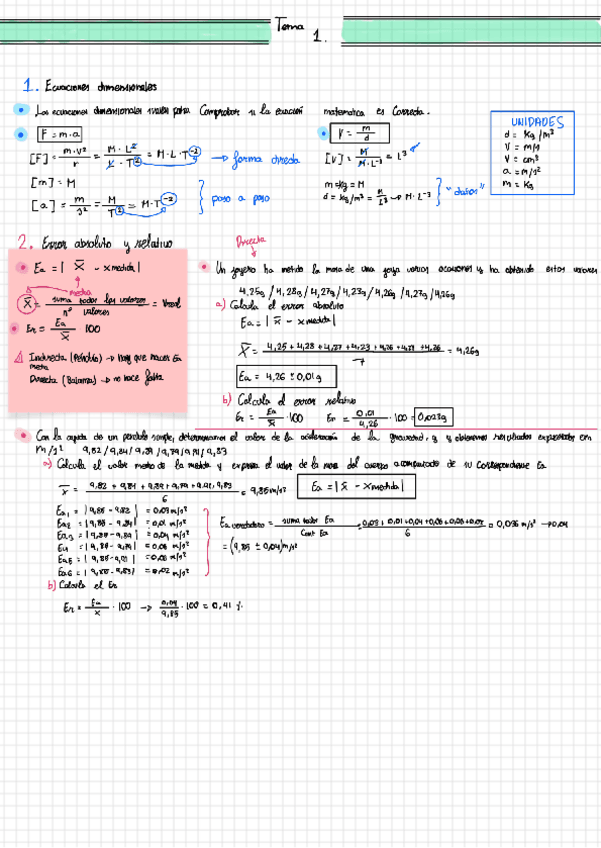 Tema 1.
1. Ecuaciones dimensionales
Las ecuaciones dimensionales sirven para comprobar si la ecuación matemática es correcta.
F = m·a
[F] = m·v²/r = M·L²/L·T² = M·L·T⁻² → forma directa
[m] = M
[a] = m/s² = M/T² = M·T⁻²
paso a paso
V = m/d
[V] = M/M·L⁻³ = L³
m = kg = M
d = kg/m³ = M/L³ → M·L⁻³
"datos"
UNIDADES
d = kg/m³
V = m/s
V = cm³
a = m/s²
m = kg
2. Error absoluto y relativo
Ea = | x̄ - xmedida |
media
x̄ = suma todos los valores / nº valores = Vreal
Er = Ea/x̄ 100
Indirecta (Péndulo) → hay que hacer Ea
Directa (Balanza) → no hace falta
Directa
Un joyero ha medido la masa de una joya varias ocasiones y ha obtenido estos valores
4,25g / 4,28g / 4,27g / 4,23g / 4,26g / 4,27g / 4,26g
a) Calcula el error absoluto
Ea = | x̄ - xmedida |
x̄ = 4,25 + 4,28 + 4,27 + 4,23 + 4,26 + 4,27 + 4,26 / 7 = 4,26g
Ea = 4,26 ± 0,01g
b) Calcula el error relativo
Er = Ea/x̄ · 100 Er = 0,01/4,26 · 100 = 0,023g
Con la ayuda de un péndulo simple, determinamos el valor de la aceleración de la gravedad, g y obtenemos resultados expresados en
m/s² 9,82 / 9,84 / 9,89 /
a) Calcula el valor medio de la medida y expresa el valor de la del cuerpo acompañado de su correspondiente Ea
= 9,85m/s²
Ea = | x̄ - xmedida |
Ea1 = | 9,85 - 9,82 | = 0,03 m/s²
Ea2 = | 9,85 - 9,84 | = 0,01 m/s²
Ea3 = | 9,85 - 9,89 | = 0,04 m/s²
Ea6 = | 9,85 - 9,83 | = 0,02 m/s²
Ea verdadero = suma todos Ea / Cant Ea = 0,036 m/s² → 0,04
= (9,85 ± 0,04) m/s²
b) Calcula el Er
Er = Ea/x̄ · 100 → 0,04/9,85 · 100 = 0,41 %